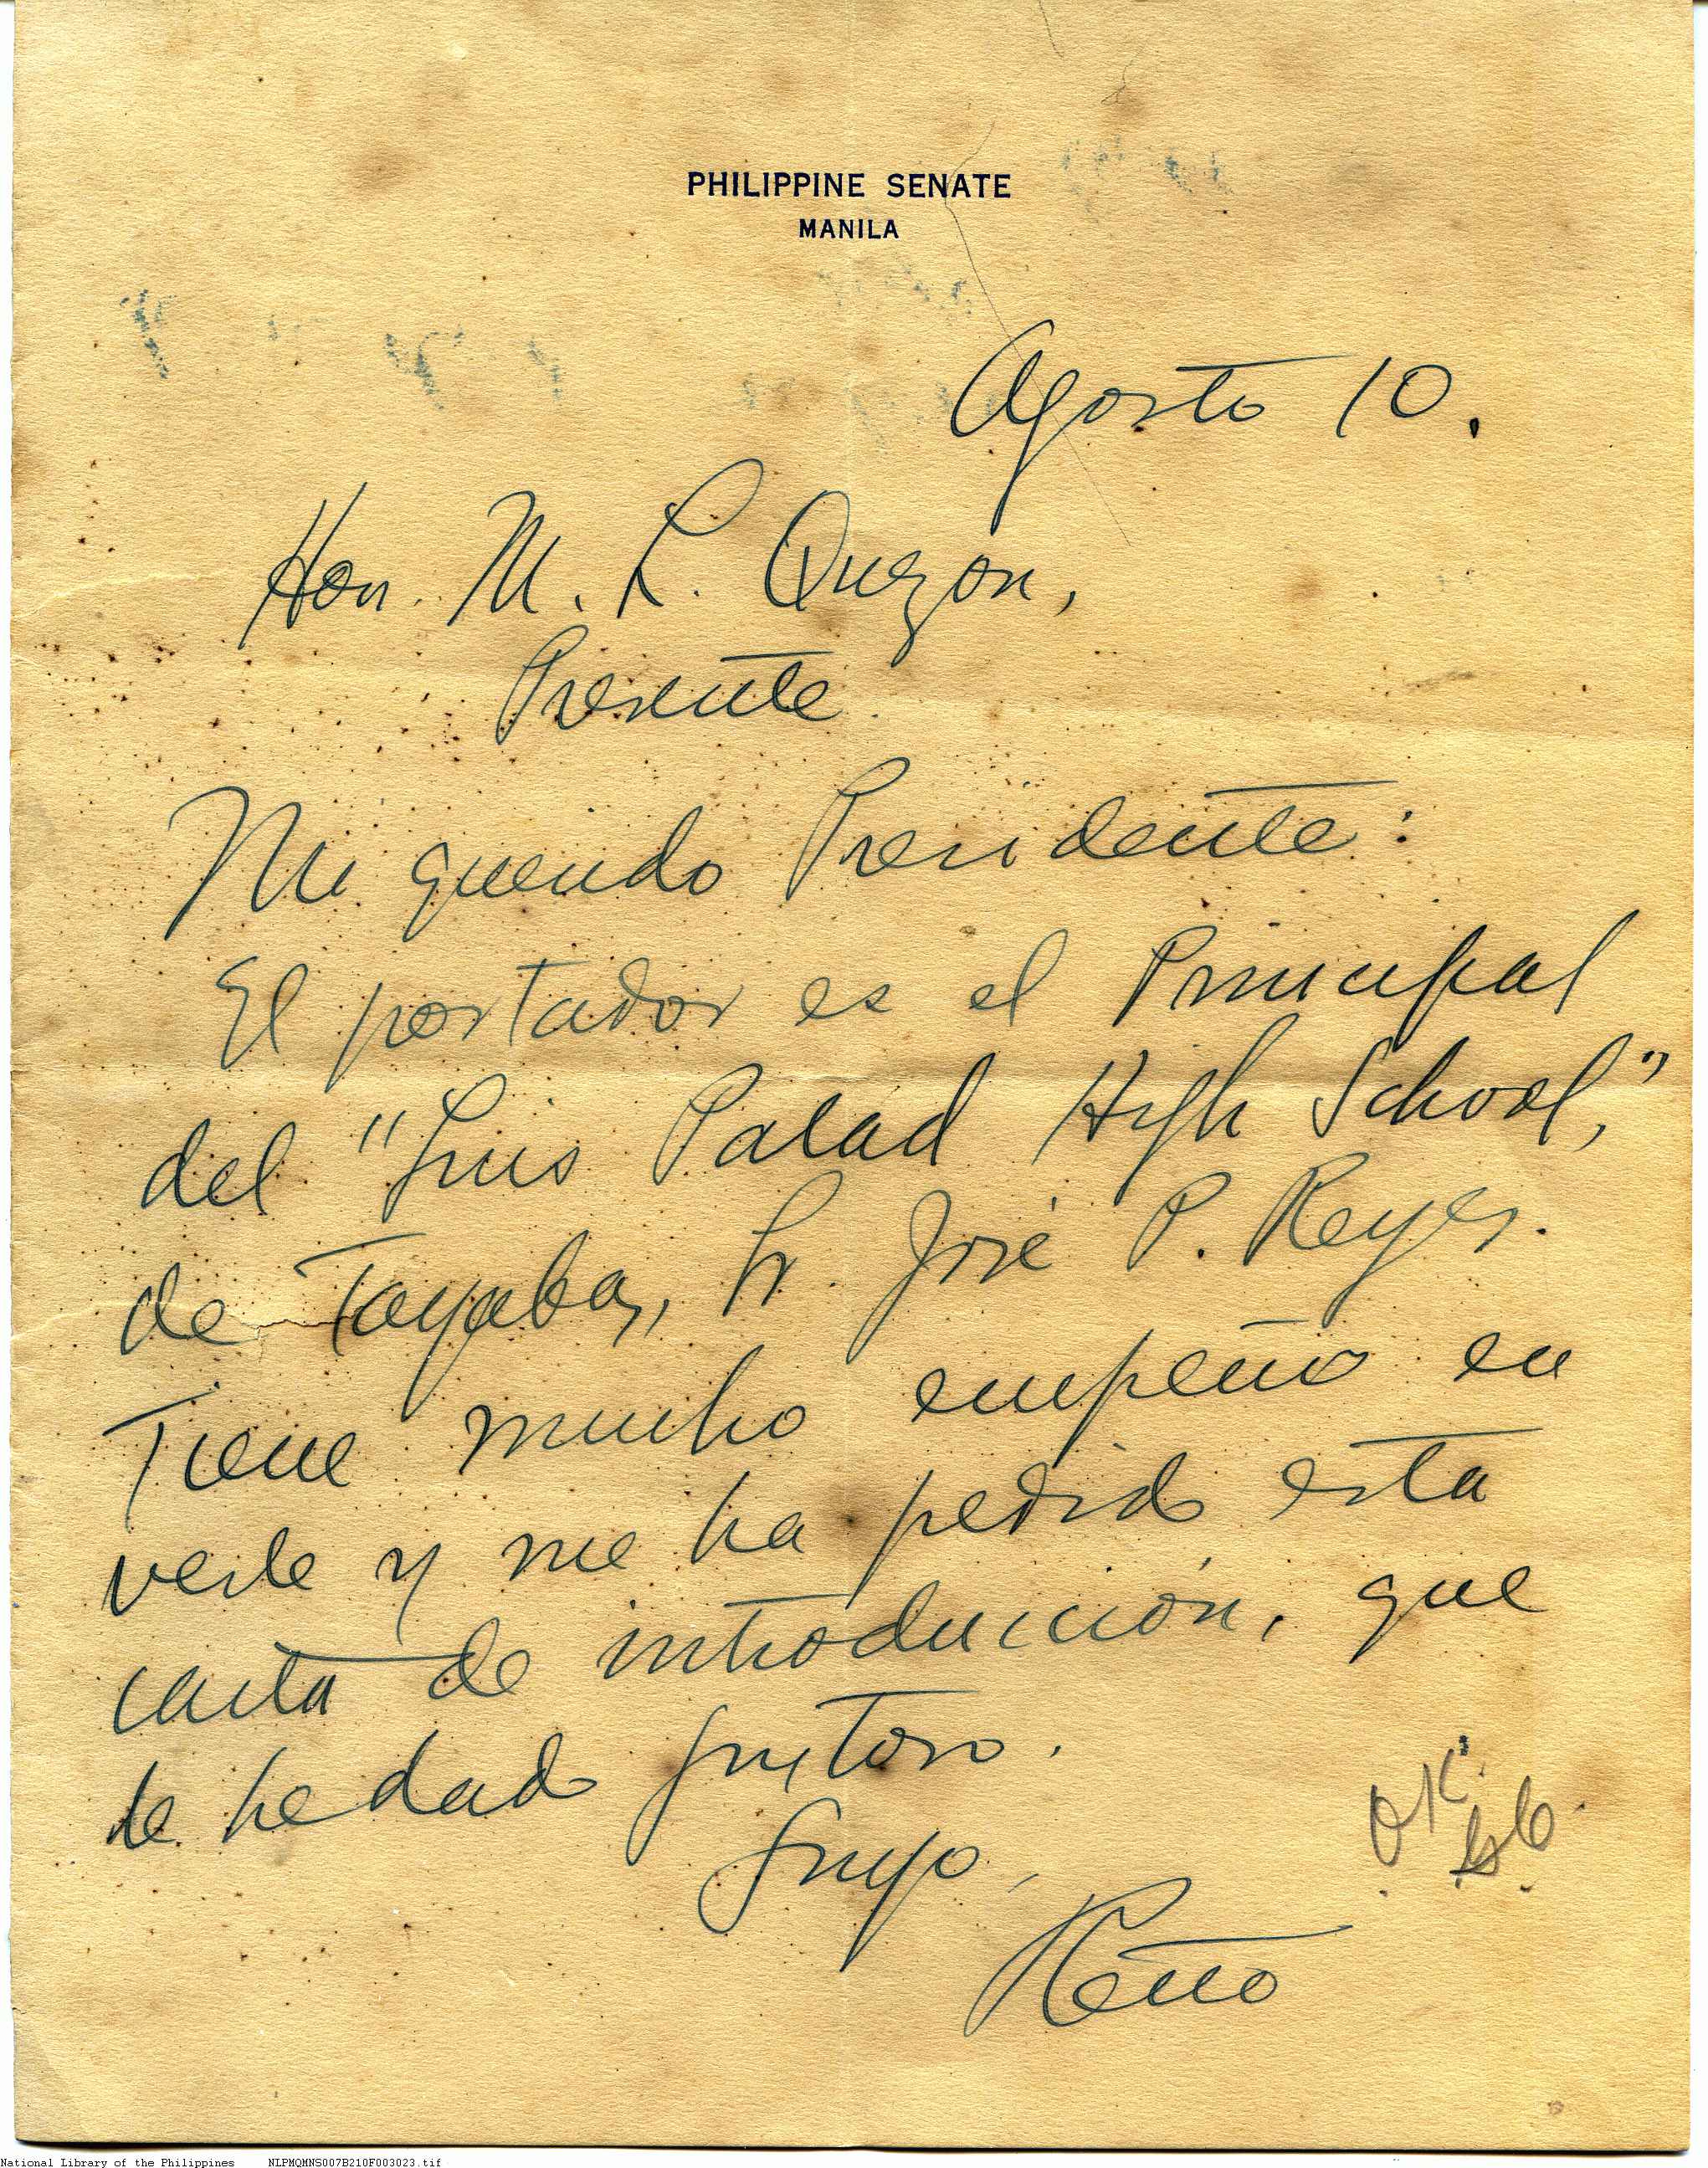 PHILIPPINE SENATE
MANILA
Agosto 10.
Hon. M. L. Quezon,
Presente.
Mi querido Presidente:
El portador es el Principal
del "Luis Palad High School,"
de Tayabas, Sr. José P. Reyes.
Tiene mucho empeño en
verle y me ha pedido esta
carta de introducción, que
le he dado gustoso.
Suyo,
OK
National Library of the Philippines NLPMQMNS007B210F003023.tif